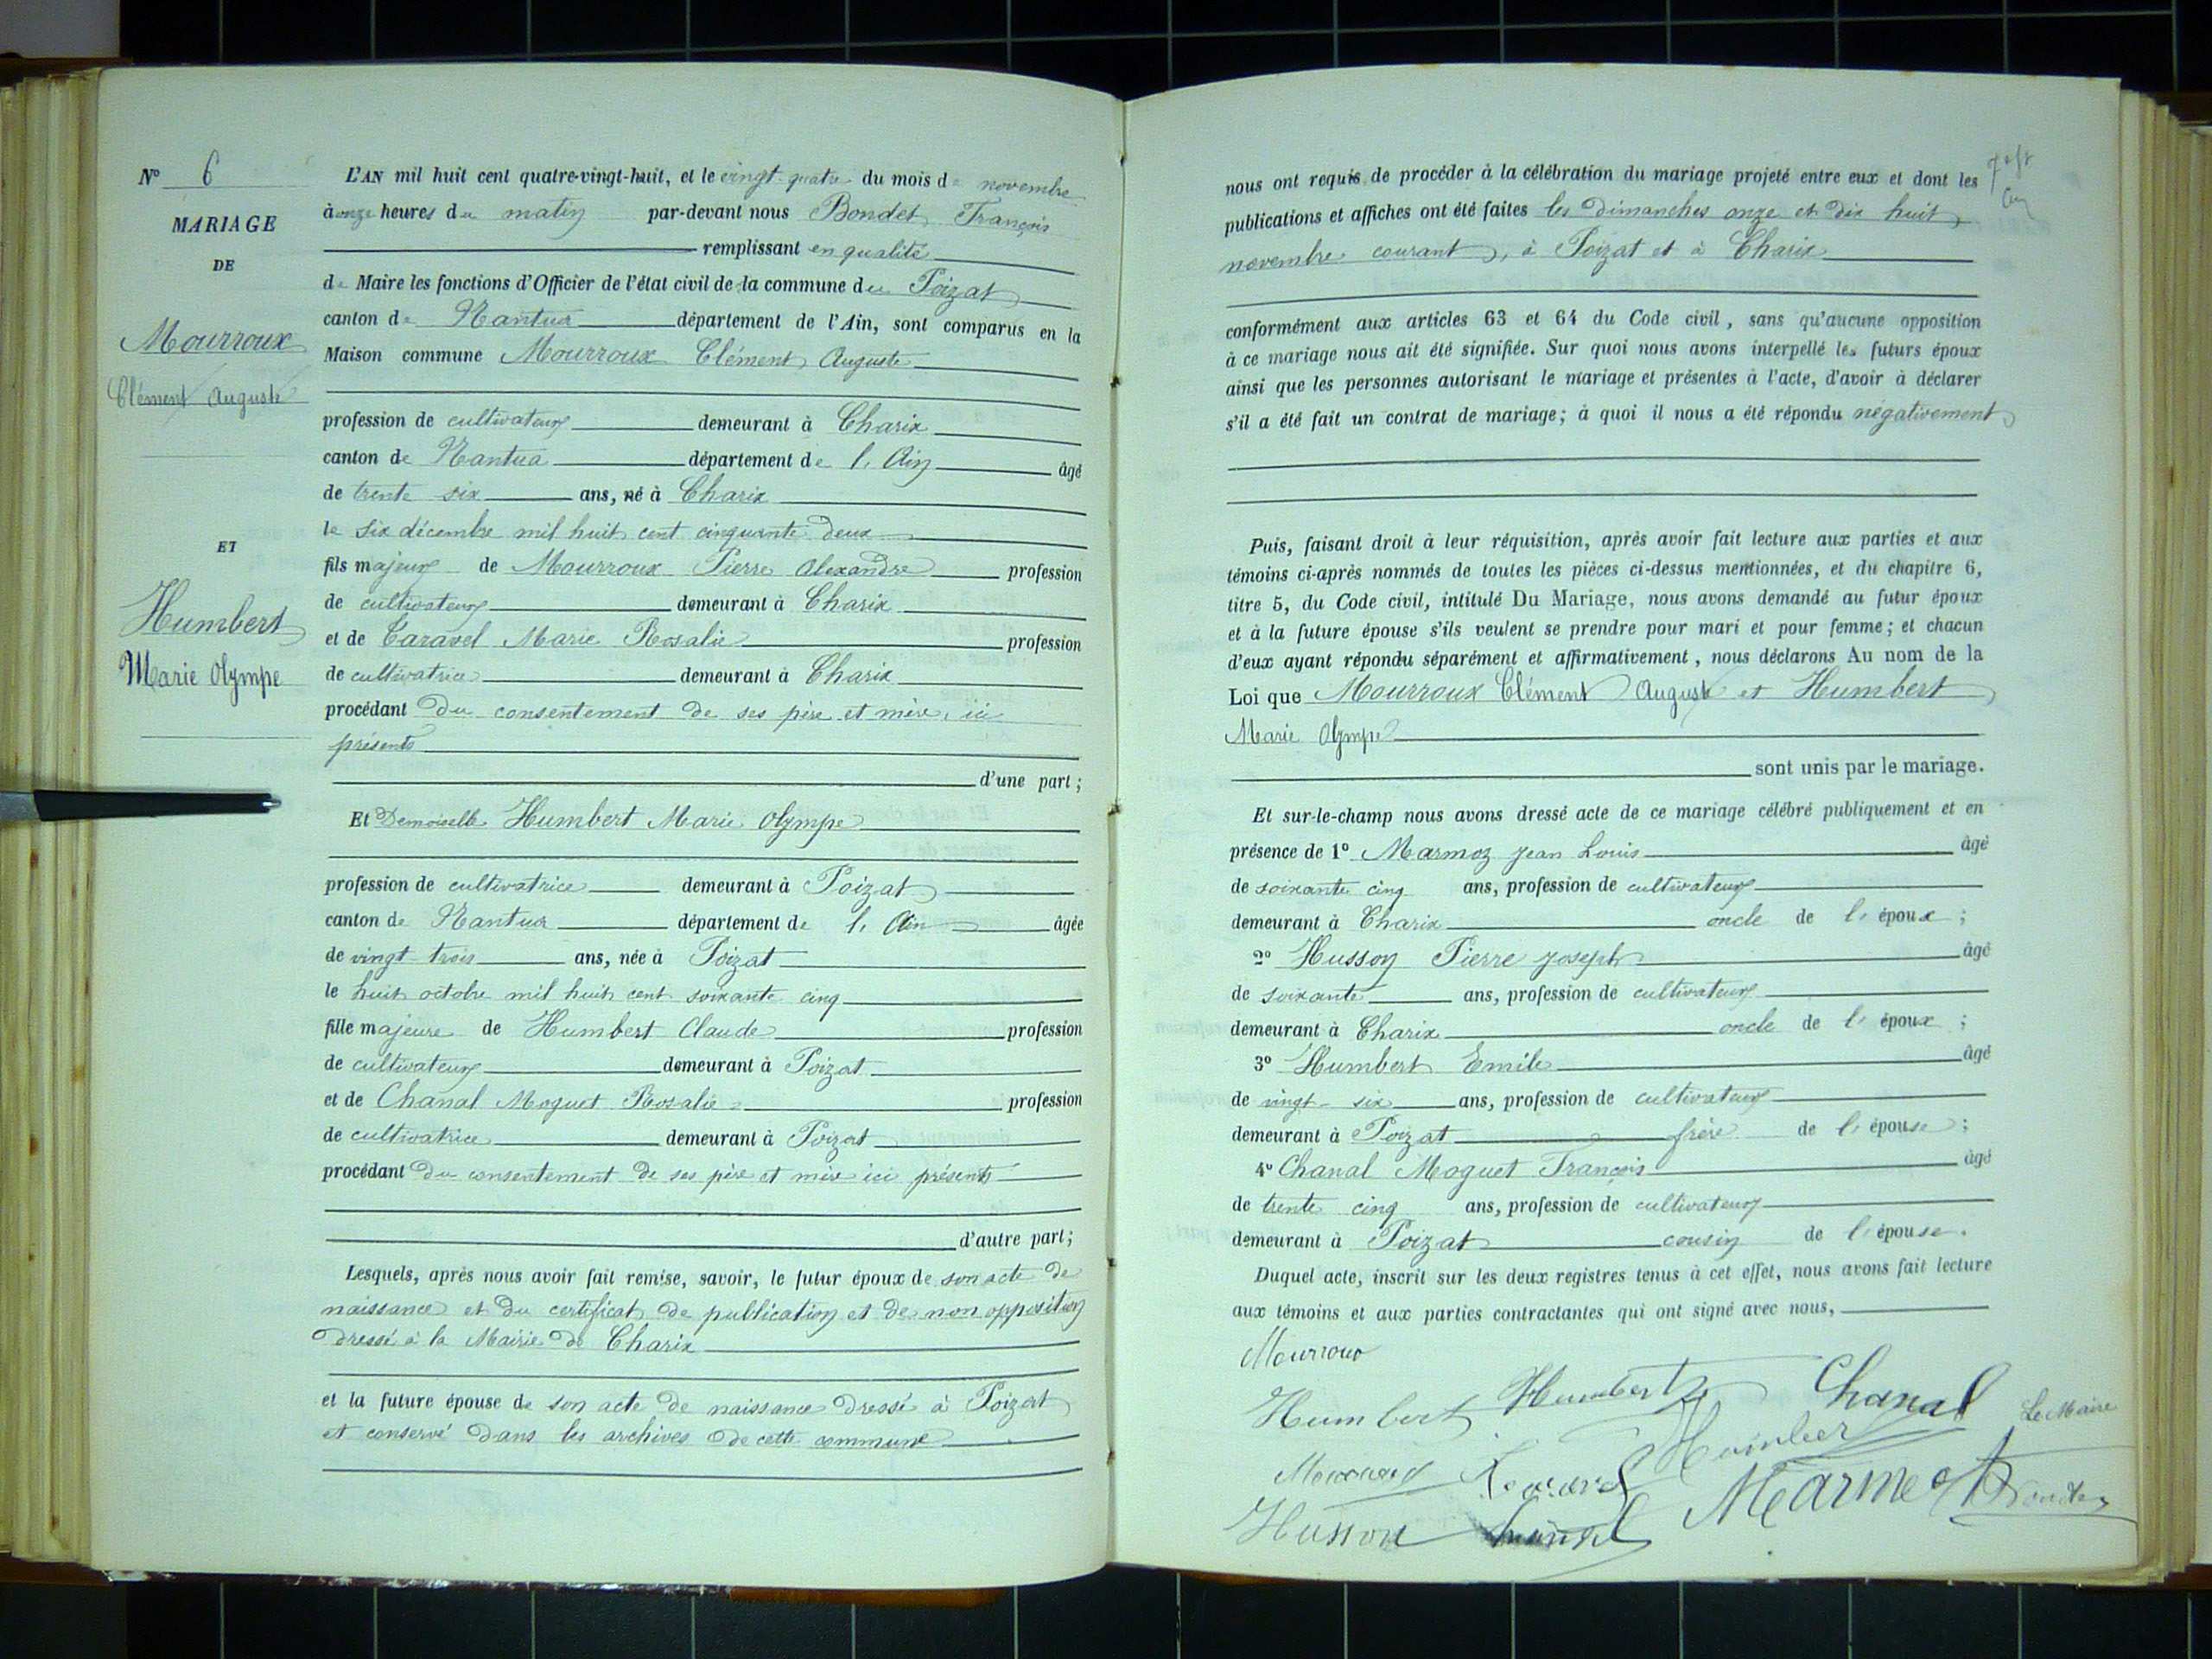 N° 6
MARIAGE
DE
Mourroux
Clément Auguste
ET
Humbert
Marie Olympe
L'AN mil huit cent quatre-vingt-huit, et le vingt-quatre du mois de novembre
à onze heures du matin par-devant nous Bondet François
remplissant en qualité
de Maire les fonctions d'Officier de l'état civil de la commune du Poizat
canton de Nantua département de l'Ain, sont comparus en la
Maison commune Mourroux Clément Auguste
profession de cultivateur demeurant à Charix
canton de Nantua département de l'Ain âgé
de trente six ans, né à Charix
le six décembre mil huit cent cinquante deux
fils majeur de Mourroux Pierre Alexandre profession
de cultivateur demeurant à Charix
et de Caravel Marie Rosalie profession
de cultivatrice demeurant à Charix
procédant du consentement de ses père et mère, ici
présents
d'une part ;
Et Demoiselle Humbert Marie Olympe
profession de cultivatrice demeurant à Poizat
canton de Nantua département de l'Ain âgée
de vingt-trois ans, née à Poizat
le huit octobre mil huit cent soixante cinq
fille majeure de Humbert Claude profession
de cultivateur demeurant à Poizat
et de Chanal Moguet Rosalie profession
de cultivatrice demeurant à Poizat
procédant du consentement de ses père et mère ici présents
d'autre part ;
Lesquels, après nous avoir fait remise, savoir, le futur époux de son acte de
naissance et du certificat de publication et de non opposition
dressé à la Mairie de Charix
et la future épouse de son acte de naissance dressé à Poizat
et conservé dans les archives de cette commune
nous ont requis de procéder à la célébration du mariage projeté entre eux et dont les
publications et affiches ont été faites les dimanches onze et dix huit
novembre courant, à Poizat et à Charix
conformément aux articles 63 et 64 du Code civil, sans qu'aucune opposition
à ce mariage nous ait été signifiée. Sur quoi nous avons interpellé les futurs époux
ainsi que les personnes autorisant le mariage et présentes à l'acte, d'avoir à déclarer
s'il a été fait un contrat de mariage ; à quoi il nous a été répondu négativement
Puis, faisant droit à leur réquisition, après avoir fait lecture aux parties et aux
témoins ci-après nommés de toutes les pièces ci-dessus mentionnées, et du chapitre 6,
titre 5, du Code civil, intitulé Du Mariage, nous avons demandé au futur époux
et à la future épouse s'ils veulent se prendre pour mari et pour femme ; et chacun
d'eux ayant répondu séparément et affirmativement, nous déclarons Au nom de la
Loi que Mourroux Clément Auguste et Humbert
Marie Olympe
sont unis par le mariage.
Et sur-le-champ nous avons dressé acte de ce mariage célébré publiquement et en
présence de 1° Marmoz Jean Louis âgé
de soixante cinq ans, profession de cultivateur
demeurant à Charix oncle de l'époux ;
2° Husson Pierre Joseph âgé
de soixante ans, profession de cultivateur
demeurant à Charix oncle de l'époux ;
3° Humbert Emile âgé
de vingt-six ans, profession de cultivateur
demeurant à Poizat frère de l'épouse ;
4° Chanal Moguet François âgé
de trente cinq ans, profession de cultivateur
demeurant à Poizat cousin de l'épouse.
Duquel acte, inscrit sur les deux registres tenus à cet effet, nous avons fait lecture
aux témoins et aux parties contractantes qui ont signé avec nous,
Mourroux
Humbert Humbert Chanal Le Maire
Humbert
Husson Chanal Bondet